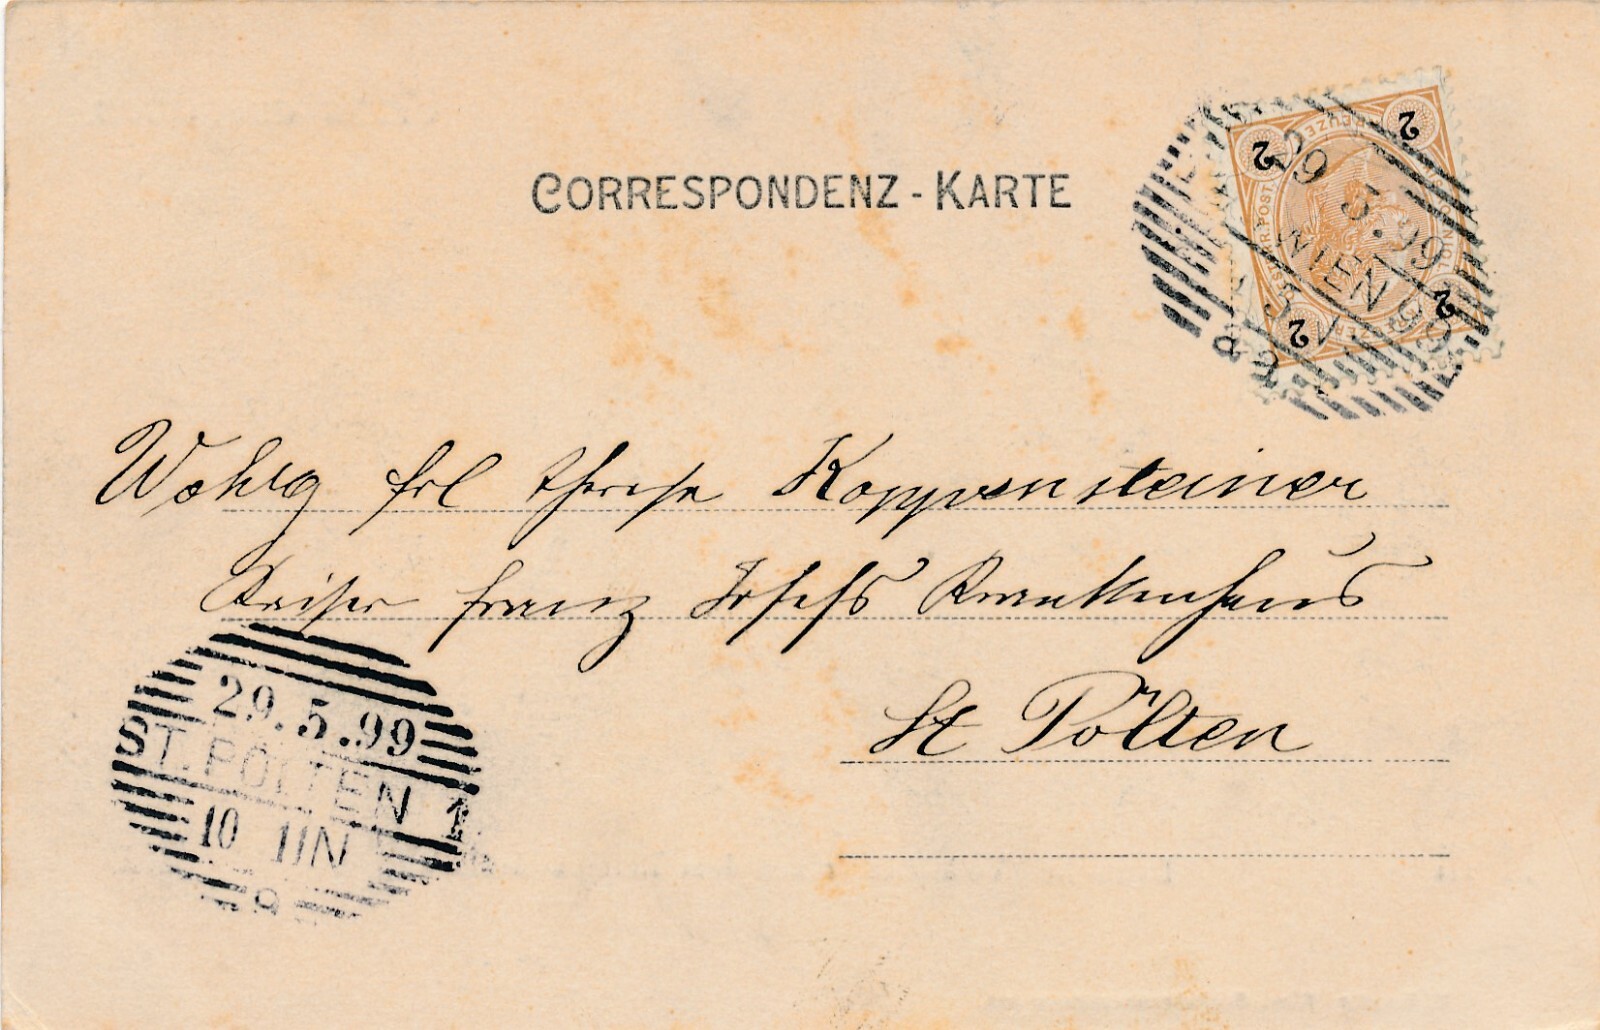 CORRESPONDENZ - KARTE
2 2 2 2
29 5.99
WIEN
Wohlg frl Therese Koppensteiner
Kaiser Franz Josefs Krankenhaus
St Pölten
29.5.99
ST. PÖLTEN 1
10 11N